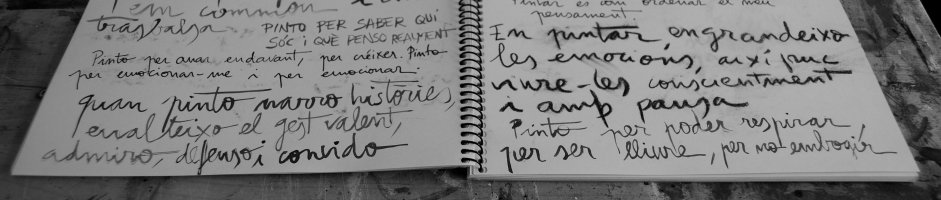 em commou i em
trasbalsa. PINTO PER SABER QUI
SÓC i QUÈ PENSO REALMENT
Pinto per anar endavant, per créixer. Pinto
per emocionar-me i per emocionar.
quan pinto narro històries,
enalteixo el gest valent,
admiro, defenso i convido
Pintar és com ordenar el meu
pensament.
En pintar, engrandeixo
les emocions, així puc
viure-les conscientment
i amb pausa
Pinto per poder respirar,
per ser lliure, per no embogir